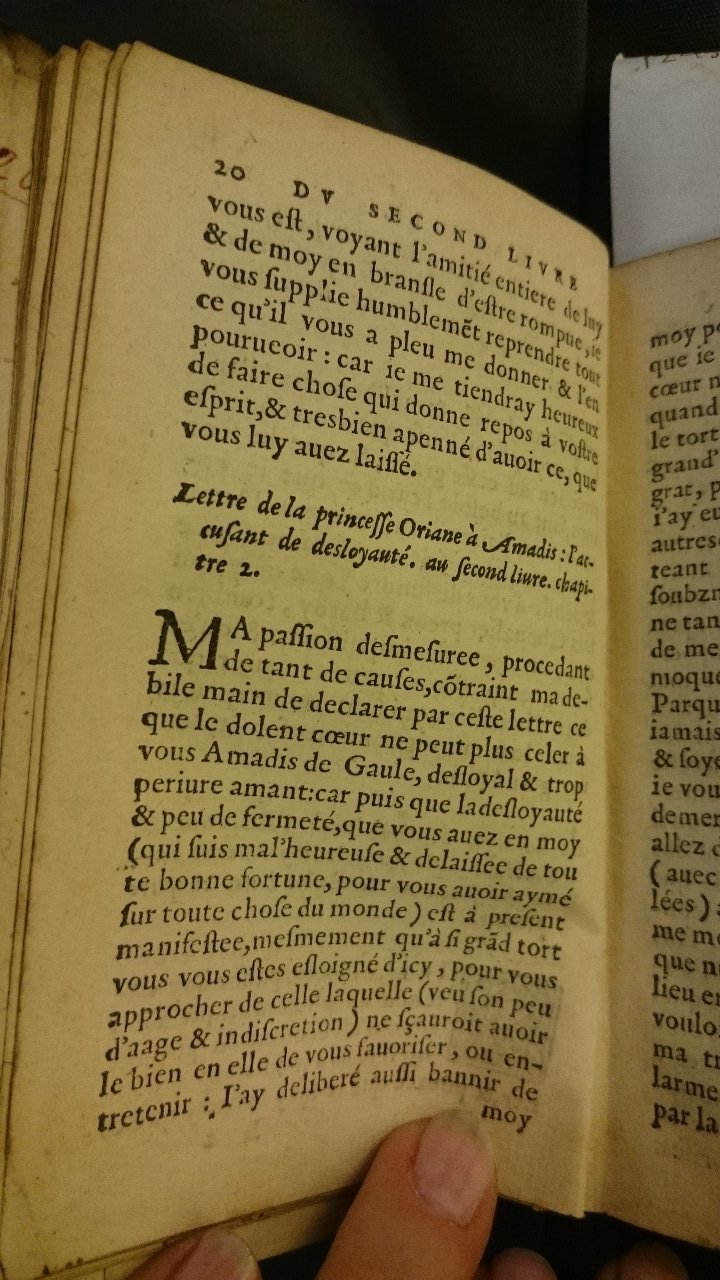 20 DV SECOND LIVRE
vous eſt, voyant l'amitié entiere de luy
& de moy en branſle d'eſtre rompue, ie
vous ſupplie humblemẽt reprendre tout
ce qu'il vous a pleu me donner & l'en
pourueoir : car ie me tiendray heureux
de faire choſe qui donne repos à voſtre
eſprit, & tresbien apenné d'auoir ce, que
vous luy auez laiſſé.
Lettre de la princeſſe Oriane à Amadis : l'ac-
cuſant de desloyauté. au ſecond liure. chapi-
tre 2.
MA paſſion deſmeſuree, procedant
de tant de cauſes, cõtraint ma de-
bile main de declarer par ceſte lettre ce
que le dolent cœur ne peut plus celer à
vous Amadis de Gaule, deſloyal & trop
periure amant: car puis que la deſloyauté
& peu de fermeté, que vous auez en moy
(qui ſuis mal'heureuſe & delaiſſee de tou
te bonne fortune, pour vous auoir aymé
ſur toute choſe du monde) eſt à preſent
manifeſtee, meſmement qu'à ſi grãd tort
vous vous eſtes eſloigné d'icy, pour vous
approcher de celle laquelle (veu ſon peu
d'aage & indiſcretion) ne ſçauroit auoir
le bien en elle de vous fauoriſer, ou en-
tretenir : I'ay deliberé auſſi bannir de
moy
moy
que ie
cœur
quand
le tort
grand'
grat,
i'ay eu
autres
teant
ſoubz
ne tan
de me
moque
Parqu
iamais
& ſoye
ie vou
demer
allez
(auec
lées)
me
que
lieu
voulo
ma
larme
par la